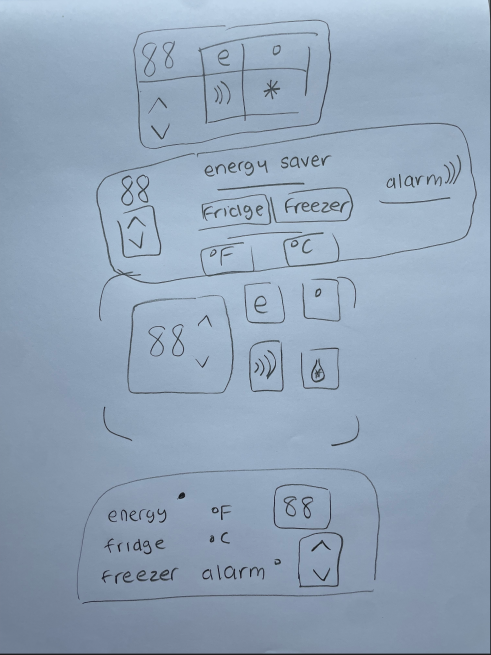 88 e °
*
energy saver
88 alarm
Fridge Freezer
°F °C
88 e °
energy °F 88
fridge °C
freezer alarm °